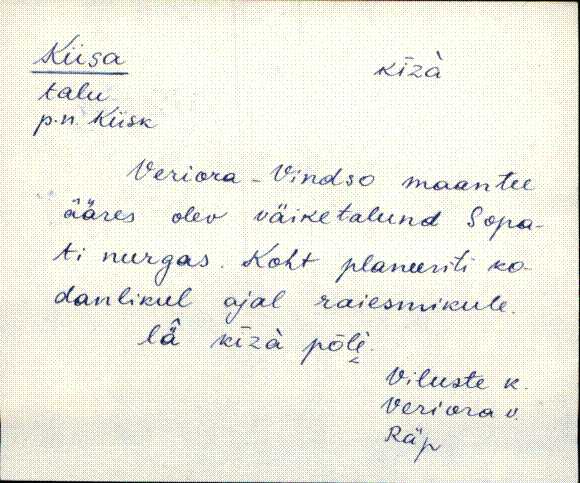 Kiisa
kīzà
talu
p.n. Kiisk
Veriora - Vindso maantee
ääres olev väiketalund Sopa-
ti nurgas. Koht planeeriti ko-
danlikul ajal raiesmikule.
lä̂ kīzà põlè.
Viluste k.
Veriora v.
Räp